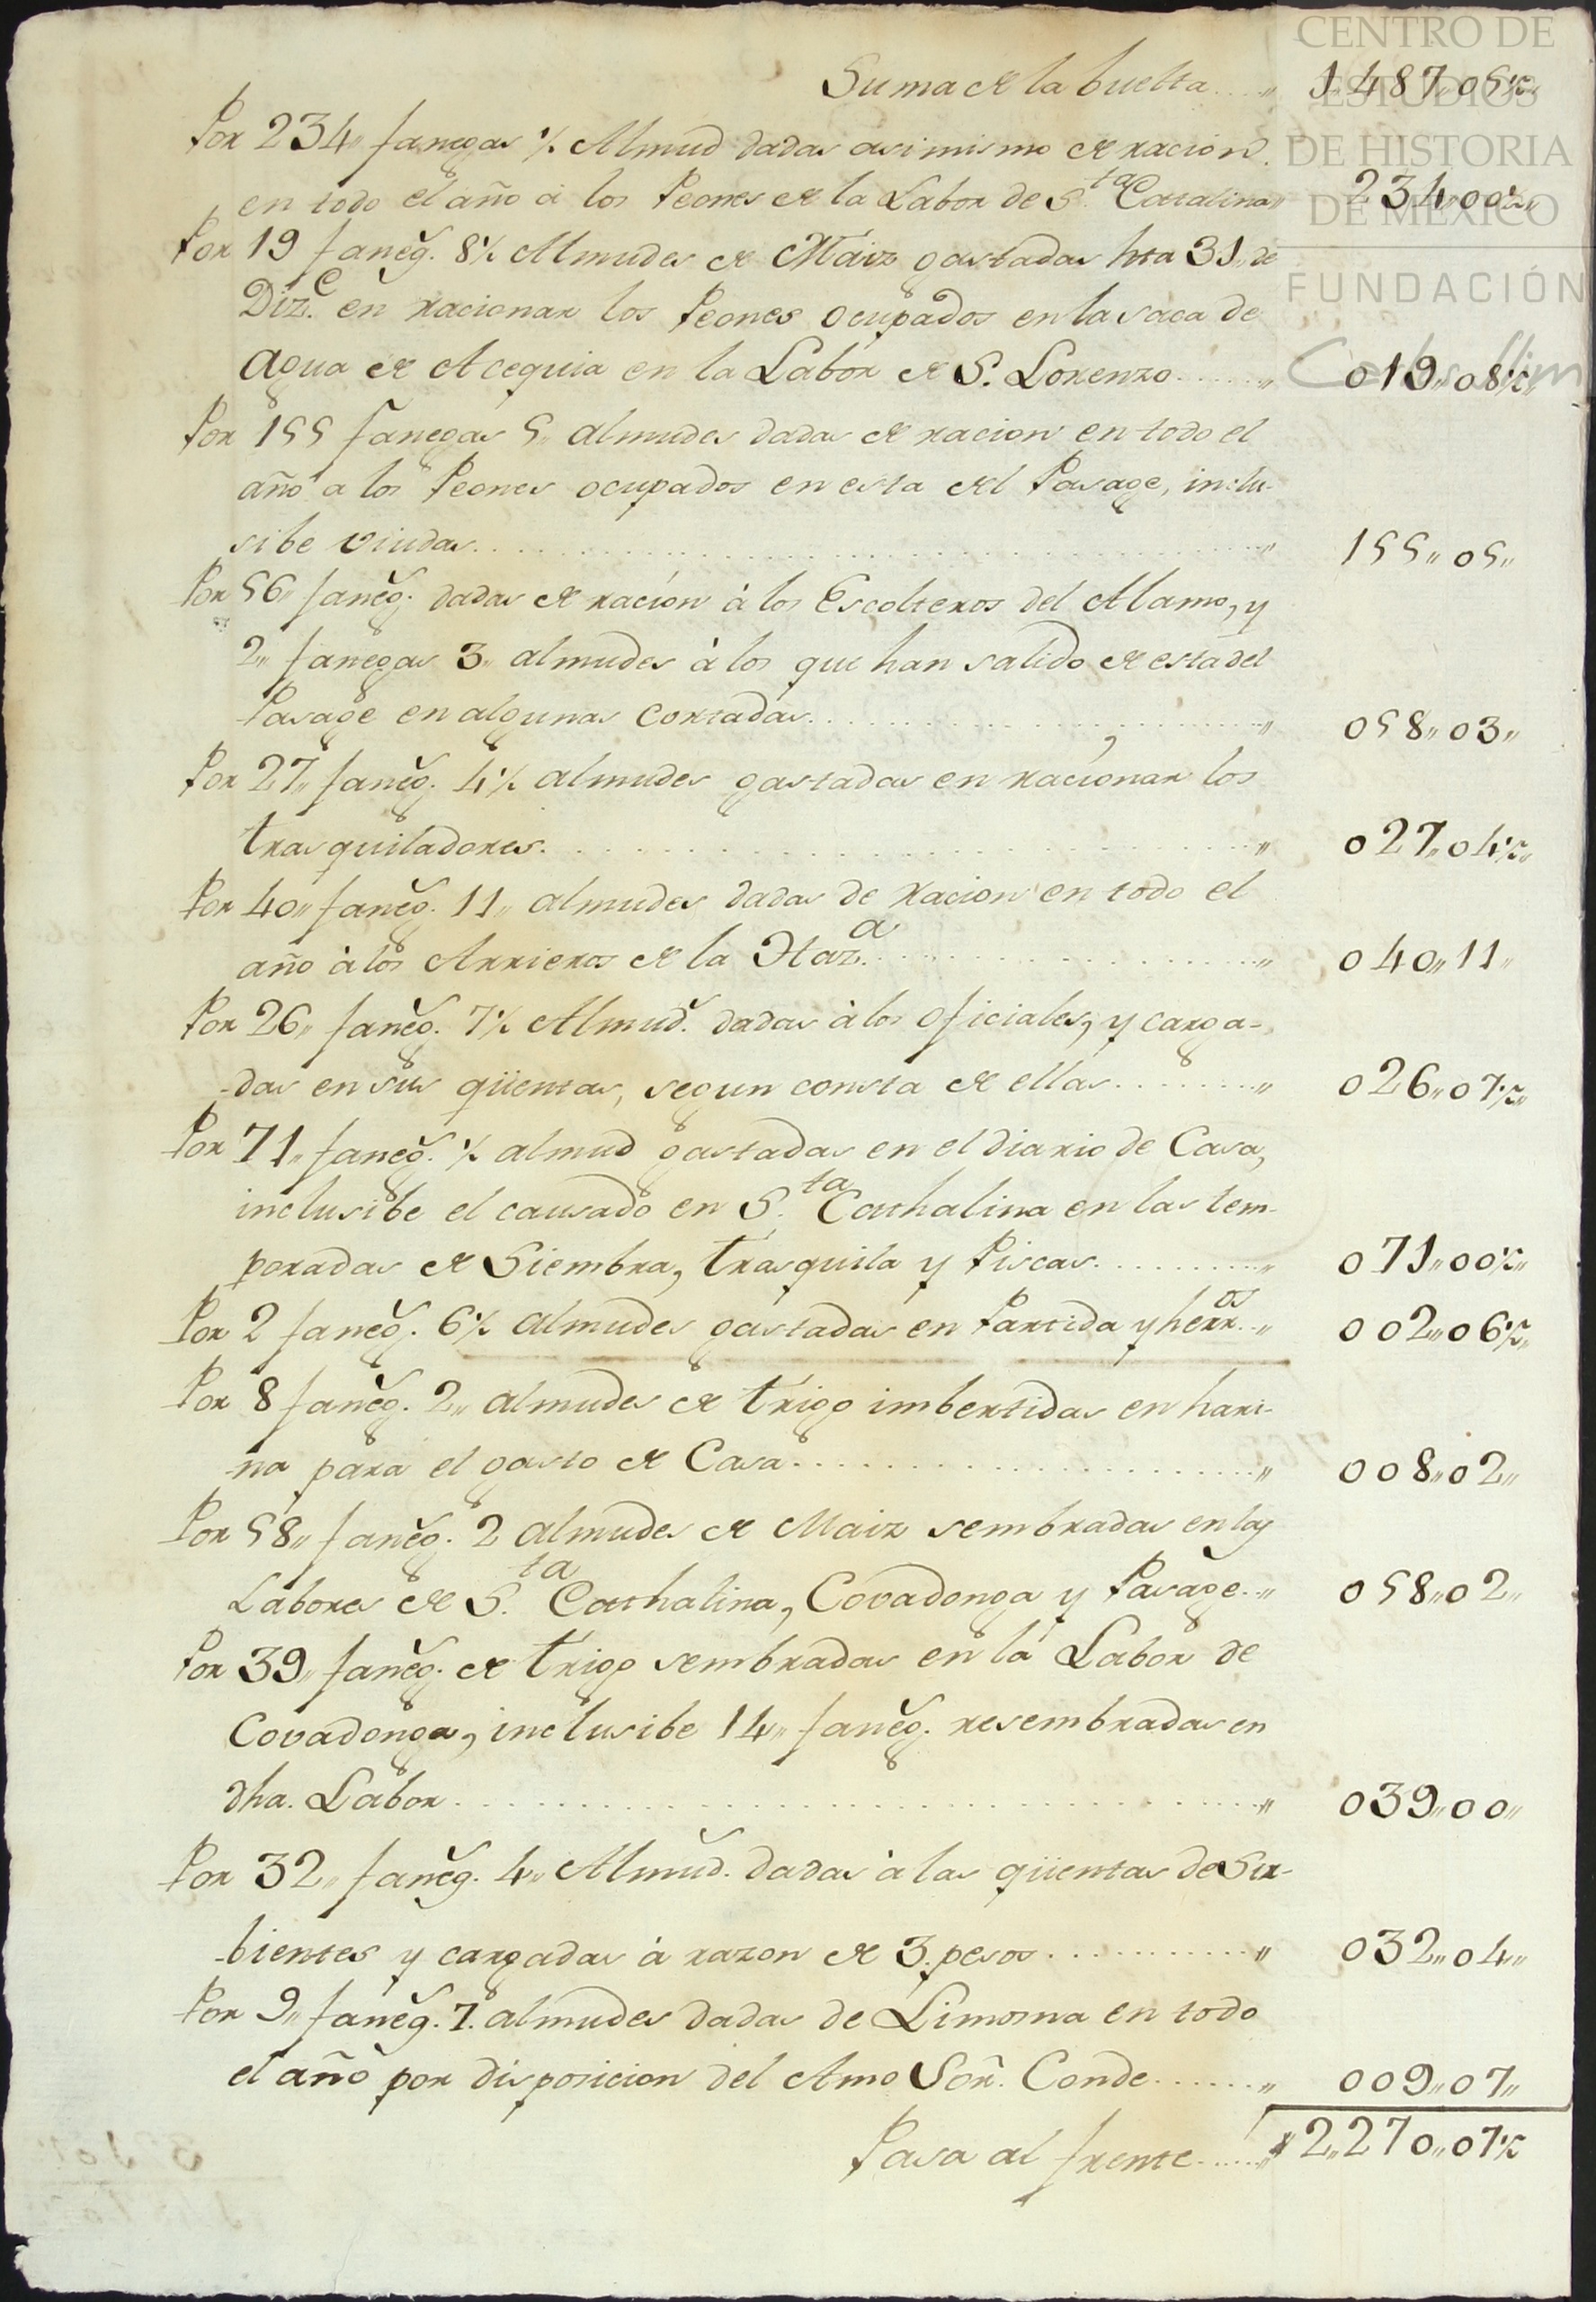 CENTRO DE
ESTUDIOS
DE HISTORIA
DE MÉXICO
FUNDACIÓN
Carlos Slim
Suma de la buelta....,, 1,,487,,05½,,
Por 234,, fanegas ½ Almud dadas asimismo de racion
en todo el año á los Peones de la Labor de S.ta Catalina,, 234,,00½,,
Por 19 faneg. 8½ Almudes de Maiz gastadas hta 31,, de
Diz.e en racionar los Peones ocupados en la saca de
agua de Acequia en la Labor de S. Lorenzo......,, 019,,08½,,
Por 155 fanegas 5,, almudes dadas de racion en todo el
año a los Peones ocupados en esta del Pasage, inclu-
sibe viudas..........,, 155,,05,,
Por 56,, faneg. dadas de racion à los Escolteros del Alamo, y
2,, fanegas 3,, almudes à los que han salido de esta del
Pasage en algunas cortadas..........,, 058,,03,,
Por 27,, faneg. 4½ almudes gastadas en racionar los
trasquiladores..........,, 027,,04½,,
Por 40,, faneg. 11,, almudes dadas de racion en todo el
año à los Arrieros de la Haz.a..........,, 040,,11,,
Por 26,, faneg. 7½ Almud. dadas à los oficiales, y carga-
-das en sus qüentas, segun consta de ellas........,, 026,,07½,,
Por 71,, faneg. ½ almud gastadas en el diario de Casa,
inclusibe el causado en S.ta Cathalina en las tem-
poradas de Siembra, trasquila y Piscas.........,, 071,,00½,,
Por 2 faneg. 6½ almudes gastadas en Partida y herr.os,, 002,,06½,,
Por 8 faneg. 2,, almudes de trigo imbertidas en hari-
-na para el gasto de Casa..........,, 008,,02,,
Por 58,, faneg. 2 almudes de Maiz sembradas en las
Labores de S.ta Cathalina, Covadonga y Pasage..,, 058,,02,,
Por 39,, faneg. de trigo sembradas en la Labor de
Covadonga, inclusibe 14,, faneg. resembradas en
dha. Labor..........,, 039,,00,,
Por 32,, faneg. 4,, Almud. dadas à las qüentas de Sir-
-bientes y cargadas à razon de 3. pesos..........,, 032,,04,,
Por 9,, faneg. 7. almudes dadas de Limosna en todo
el año por disposicion del Amo Sor. Conde......,, 009,,07,,
Pasa al frente......,, 2,,270,,07½